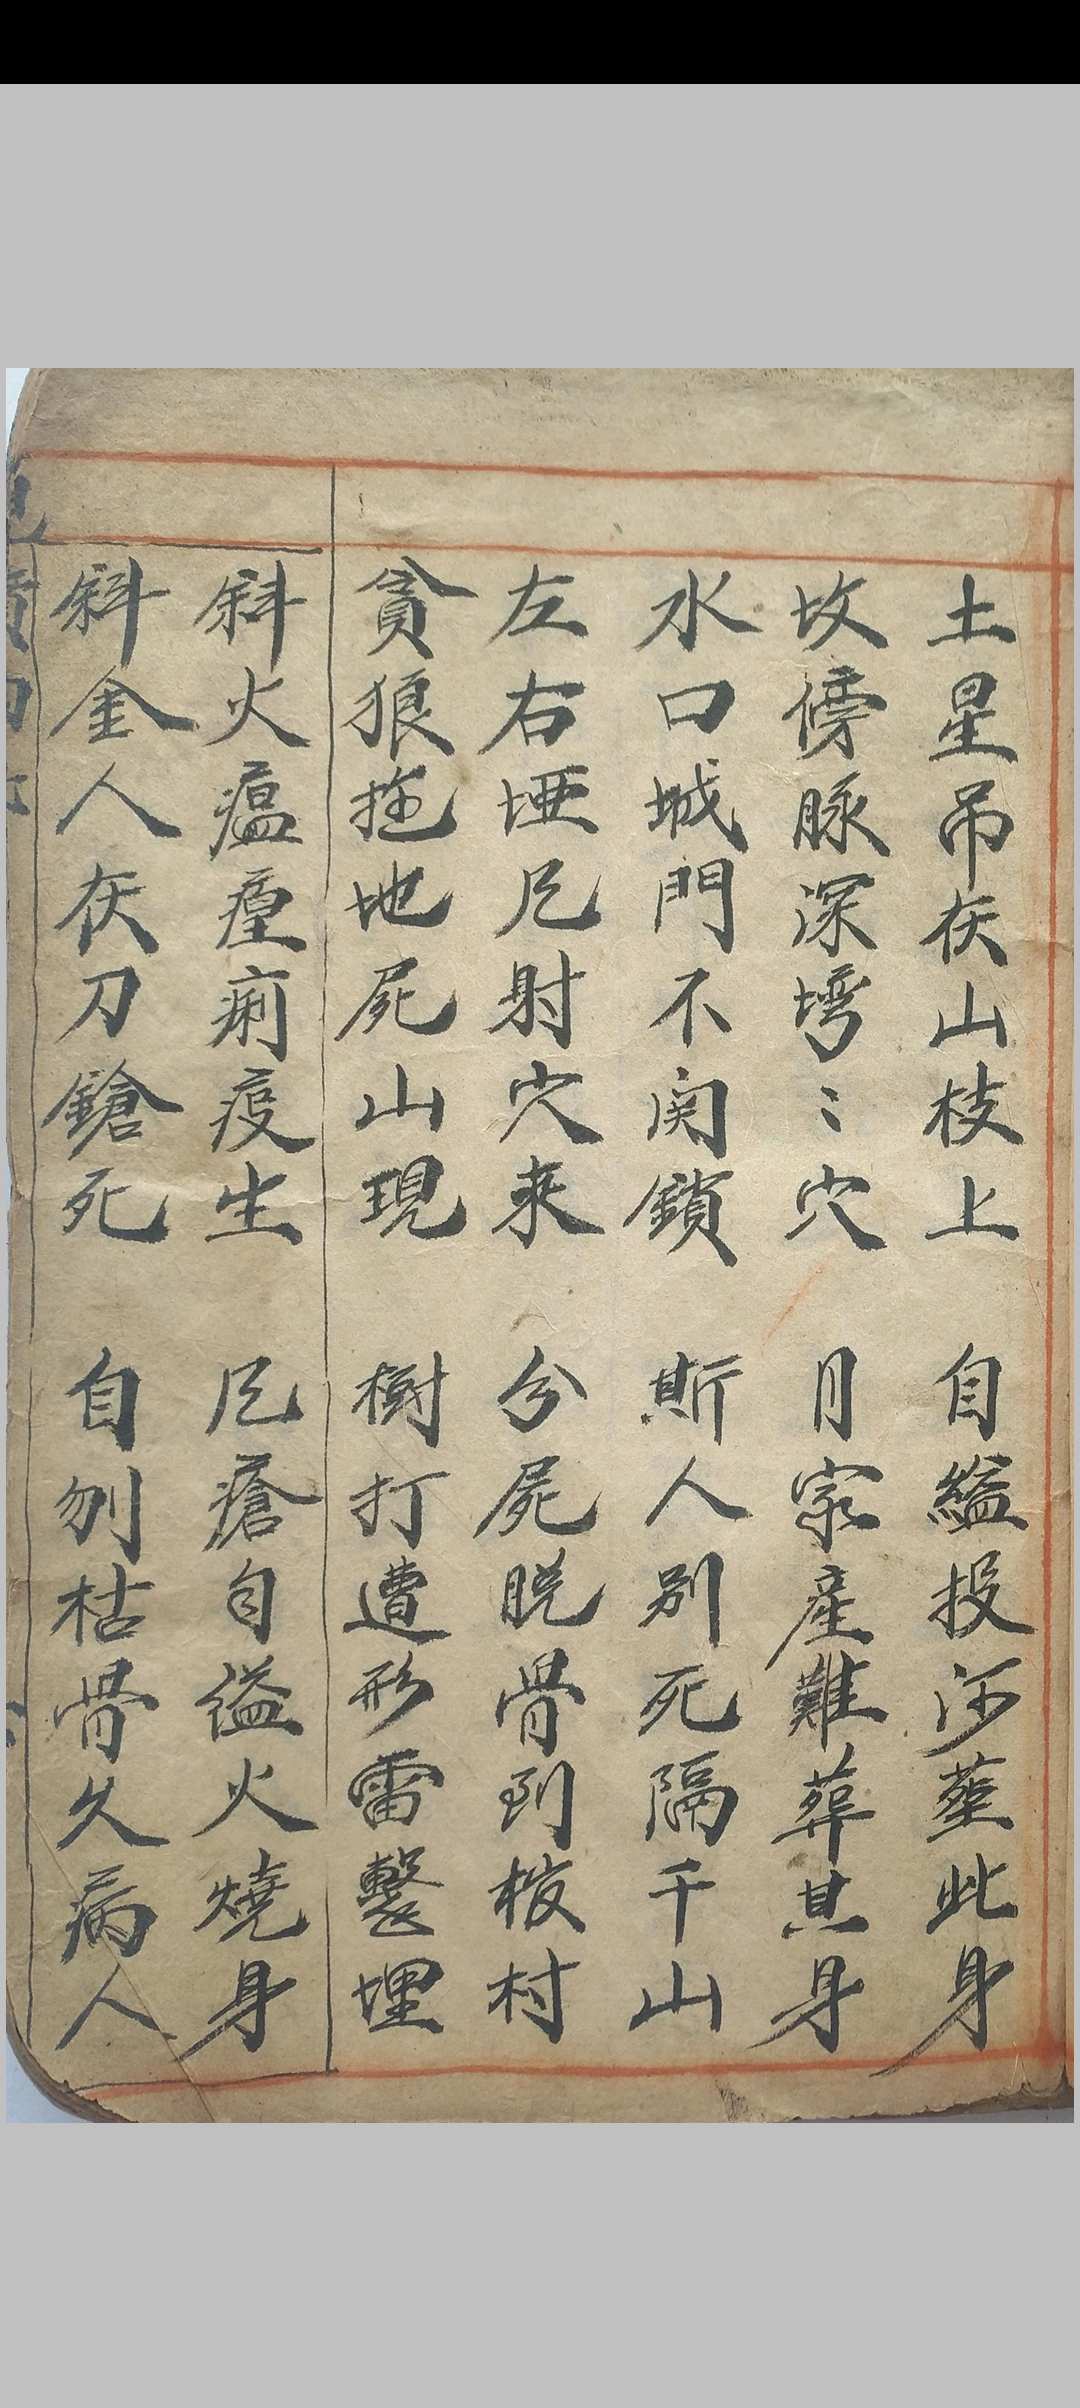 土星吊灰山枝上 自縊投河塟此身
坟傍脉深塆〻穴 月家產難葬其身
水口城門不関鎖 斯人别死隔千山
左右埡凹射穴来 分屍脱骨到椶村
貪狼拖地屍山現 樹打遭形雷擊埋
斜火瘟𤶊痢疫生 凹瘡自謚火燒身
斜金人灰刀鎗死 自刎枯骨久病人